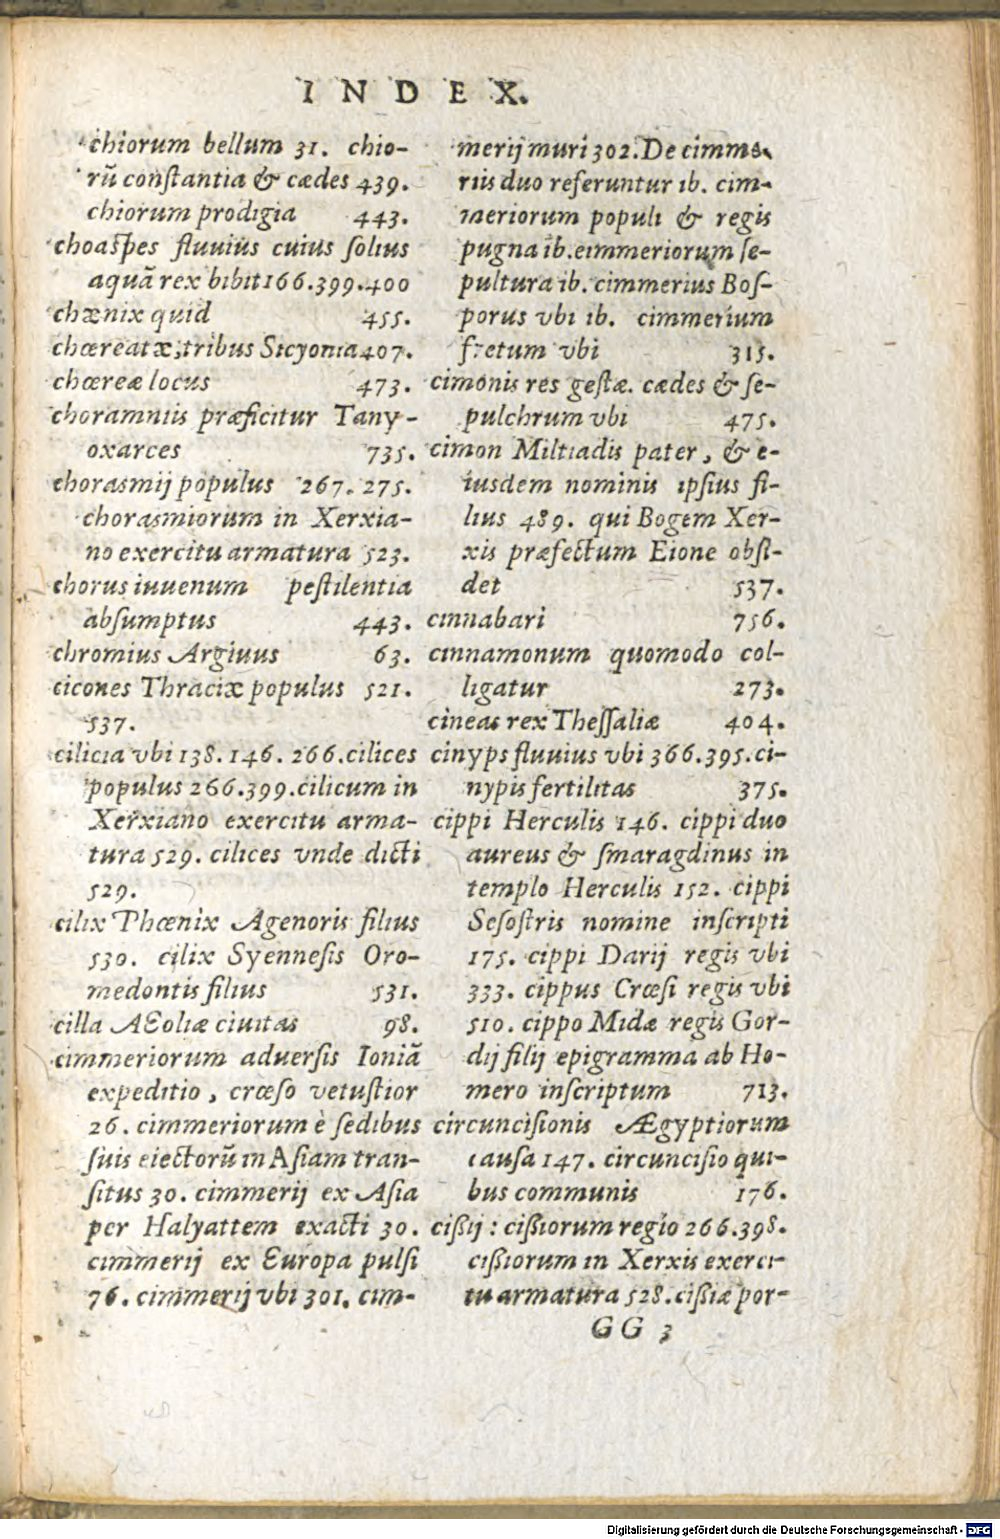 INDEX.
chiorum bellum 31. chio-
rũ constantia & cædes 439.
chiorum prodigia 443.
choaspes fluuius cuius solius
aquã rex bibit 166.399.400
chænix quid 455.
chœreatæ, tribus Sicyonia 407.
chœreæ locus 473.
choramniis præficitur Tany-
oxarces 735.
chorasmij populus 267. 275.
chorasmiorum in Xerxia-
no exercitu armatura 523.
chorus iuuenum pestilentia
absumptus 443.
chromius Argiuus 63.
cicones Thraciæ populus 521.
537.
cilicia vbi 138. 146. 266. cilices
populus 266.399. cilicum in
Xerxiano exercitu arma-
tura 529. cilices vnde dicti
529.
cilix Phœnix Agenoris filius
530. cilix Syennesis Oro-
medontis filius 531.
cilla AEoliæ ciuitas 98.
cimmeriorum aduersis Ioniã
expeditio, crœso vetustior
26. cimmeriorum è sedibus
suis eiectorũ in Asiam tran-
situs 30. cimmerij ex Asia
per Halyattem exacti 30.
cimmerij ex Europa pulsi
76. cimmerij vbi 301. cim-
merij muri 302. De cimme-
riis duo referuntur ib. cim-
meriorum populi & regis
pugna ib. eimmeriorum se-
pultura ib. cimmerius Bos-
porus vbi ib. cimmerium
fretum vbi 315.
cimonis res gestæ. cædes & se-
pulchrum vbi 475.
cimon Miltiadis pater, & e-
iusdem nominis ipsius fi-
lius 489. qui Bogem Xer-
xis præfectum Eione obsi-
det 537.
cinnabari 756.
cinnamonum quomodo col-
ligatur 273.
cineas rex Thessaliæ 404.
cinyps fluuius vbi 366.395. ci-
nypis fertilitas 375.
cippi Herculis 146. cippi duo
aureus & smaragdinus in
templo Herculis 152. cippi
Sesostris nomine inscripti
175. cippi Darij regis vbi
333. cippus Crœsi regis vbi
510. cippo Midæ regis Gor-
dij filij epigramma ab Ho-
mero inscriptum 713.
circuncisionis Ægyptiorum
causa 147. circuncisio qui-
bus communis 176.
cißij : cißiorum regio 266.398.
cißiorum in Xerxis exerci-
tu armatura 528. cißiæ por-
GG 3
Digitalisierung gefördert durch die Deutsche Forschungsgemeinschaft - DFG